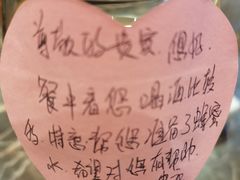 尊敬的贵宾,您好,
餐中看您喝酒比较
多,特意帮您准备了蜂蜜
水,希望对您有帮助